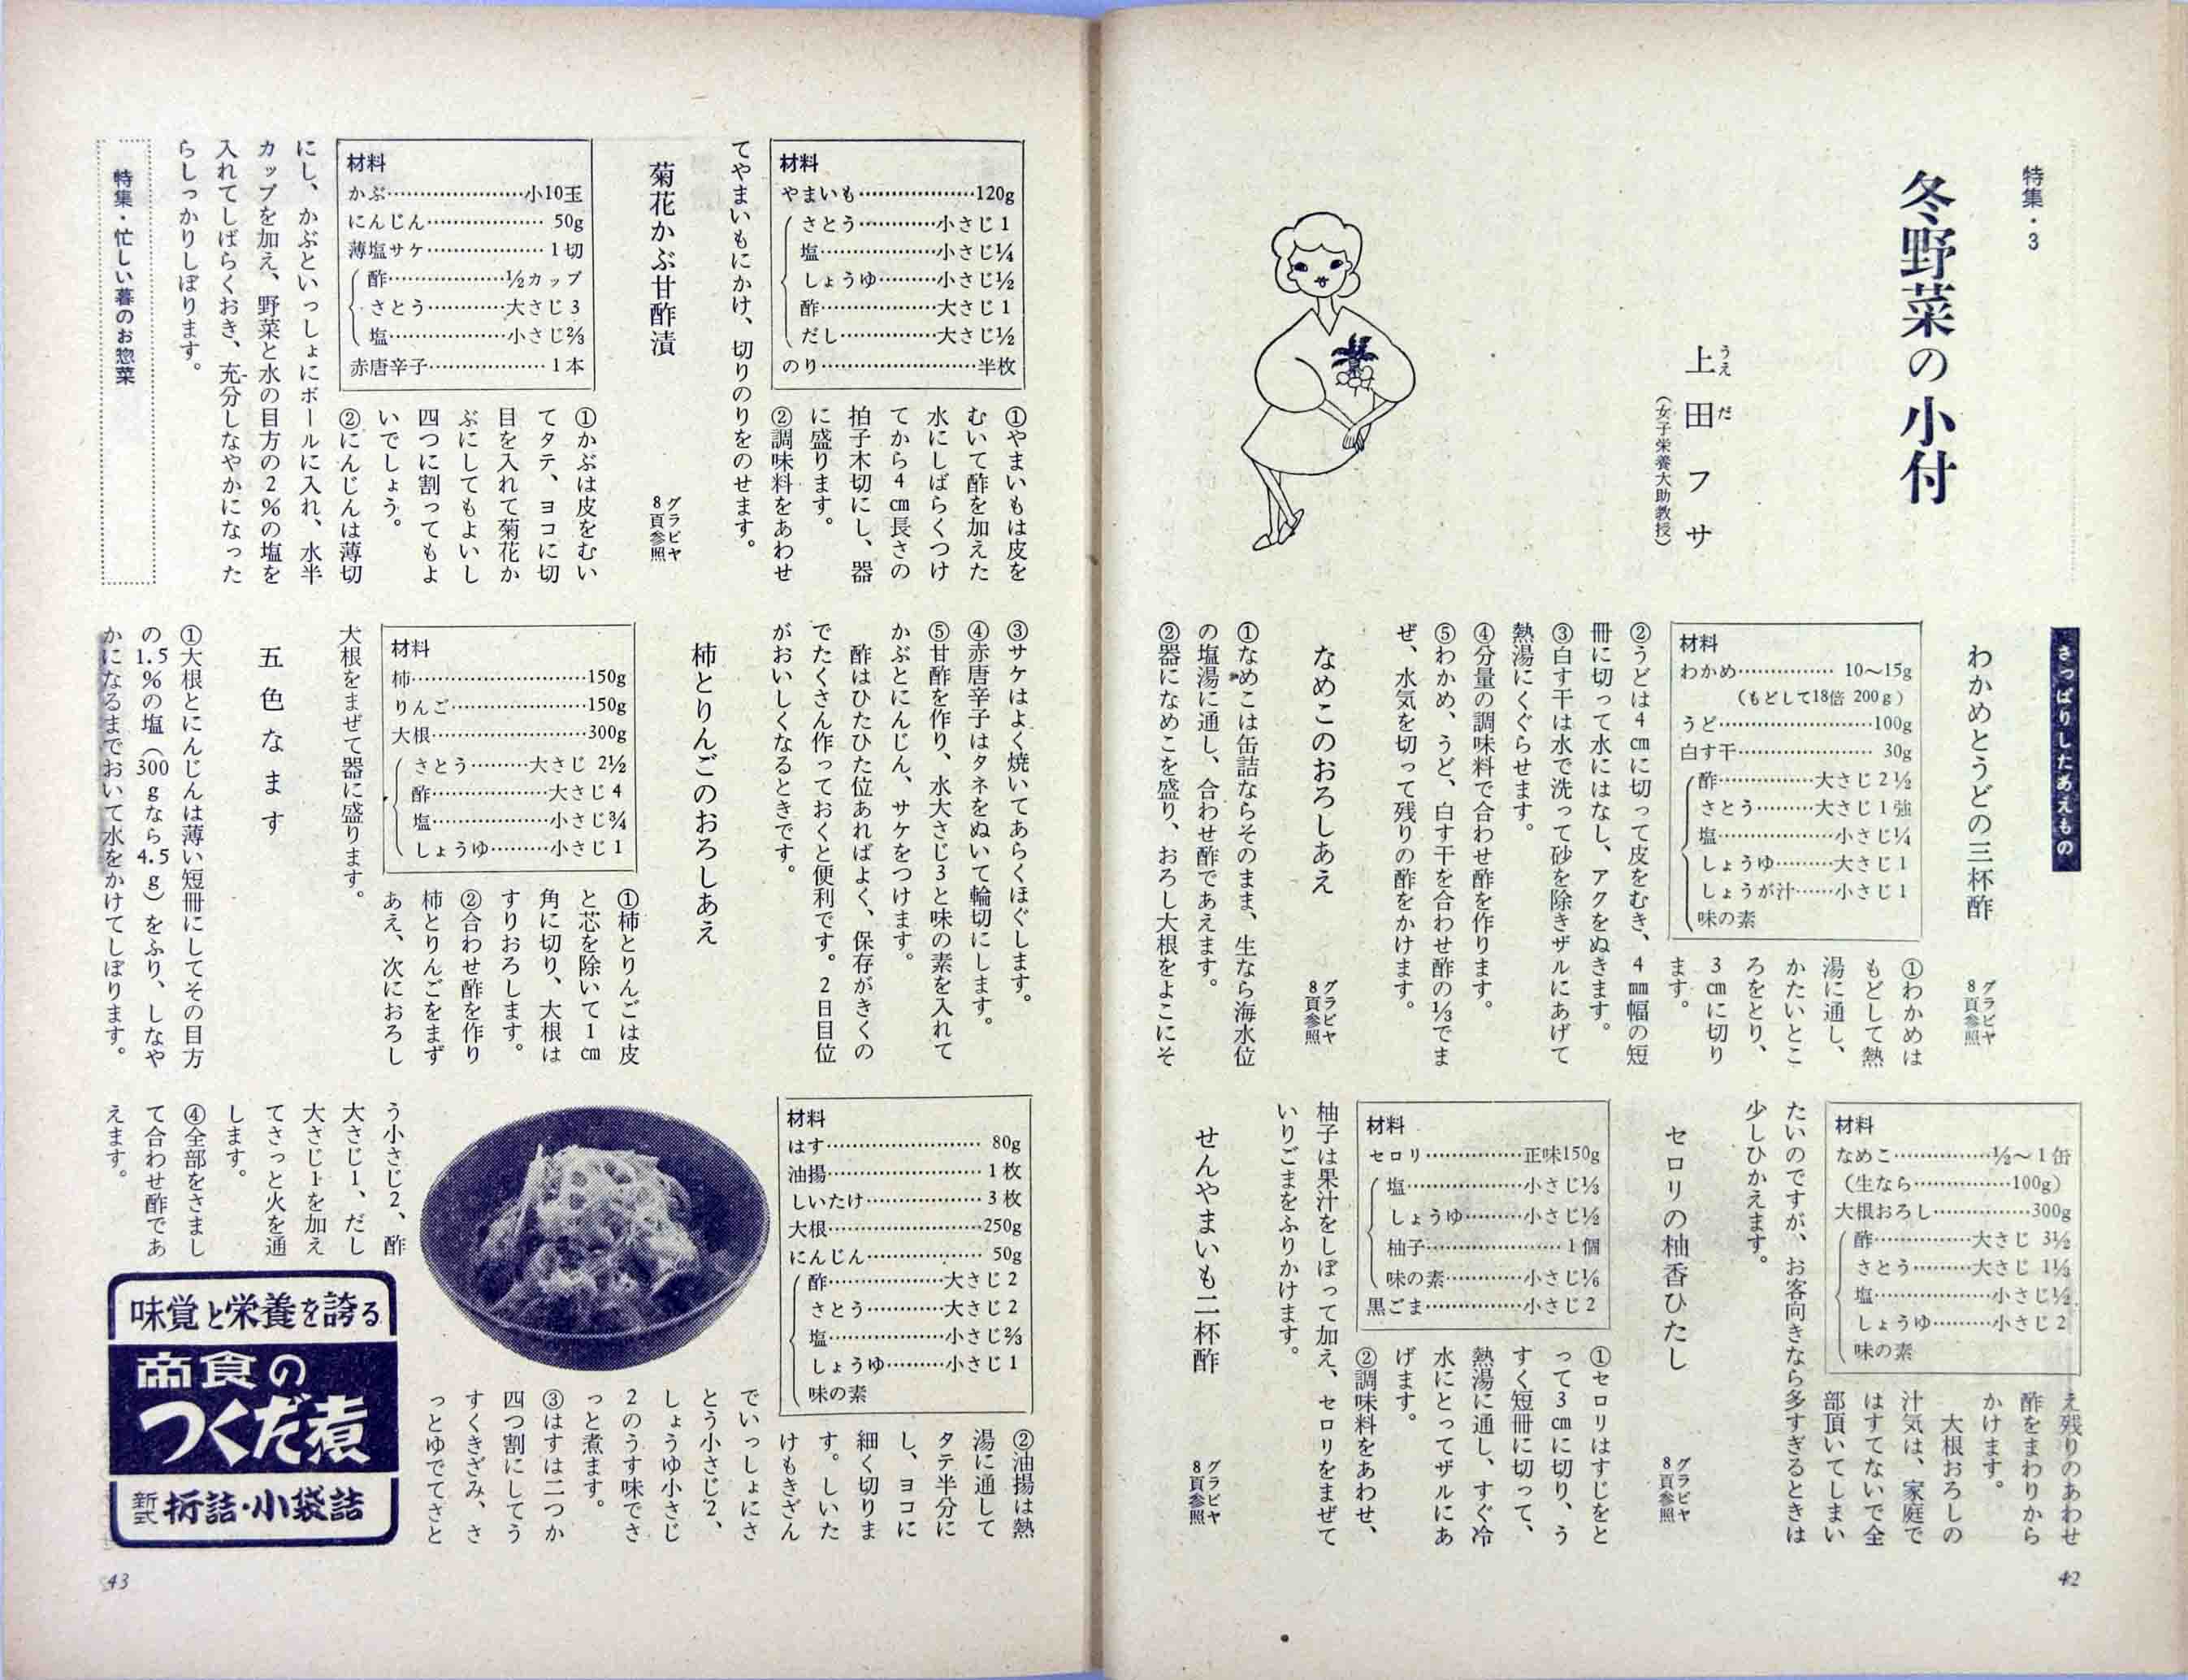 特集・3
冬野菜の小付
上田フサ
うえだ
(女子栄養大助教授)
さっぱりしたあえもの
わかめとうどの三杯酢
グラビヤ
8頁参照
材料
わかめ…………… 10〜15g
(もどして18倍 200g)
うど…………………100g
白す干………………… 30g
酢……………大さじ2½
さとう………大さじ1強
塩………………小さじ¼
しょうゆ………大さじ1
しょうが汁……小さじ1
味の素
①わかめは
もどして熱
湯に通し、
かたいとこ
ろをとり、
3㎝に切り
ます。
②うどは4㎝に切って皮をむき、4㎜幅の短
冊に切って水にはなし、アクをぬきます。
③白す干は水で洗って砂を除きザルにあげて
熱湯にくぐらせます。
④分量の調味料で合わせ酢を作ります。
⑤わかめ、うど、白す干を合わせ酢の⅓でま
ぜ、水気を切って残りの酢をかけます。
なめこのおろしあえ
グラビヤ
8頁参照
①なめこは缶詰ならそのまま、生なら海水位
の塩湯に通し、合わせ酢であえます。
②器になめこを盛り、おろし大根をよこにそ
材料
なめこ……………½〜1缶
(生なら……………100g)
大根おろし……………300g
酢……………大さじ 3½
さとう………大さじ 1⅓
塩………………小さじ½
しょうゆ………小さじ2
味の素
え残りのあわせ
酢をまわりから
かけます。
大根おろしの
汁気は、家庭で
はすてないで全
部頂いてしまい
たいのですが、お客向きなら多すぎるときは
少しひかえます。
セロリの柚香ひたし
グラビヤ
8頁参照
材料
セロリ……………正味150g
塩………………小さじ⅓
しょうゆ………小さじ½
柚子…………………1個
味の素…………小さじ⅙
黒ごま……………小さじ2
①セロリはすじをと
って3㎝に切り、う
すく短冊に切って、
熱湯に通し、すぐ冷
水にとってザルにあ
げます。
②調味料をあわせ、
柚子は果汁をしぼって加え、セロリをまぜて
いりごまをふりかけます。
せんやまいも二杯酢
グラビヤ
8頁参照
42
材料
やまいも………………120g
さとう…………小さじ1
塩………………小さじ¼
しょうゆ………小さじ½
酢………………大さじ1
だし……………大さじ½
のり……………………半枚
①やまいもは皮を
むいて酢を加えた
水にしばらくつけ
てから4㎝長さの
拍子木切にし、器
に盛ります。
②調味料をあわせ
てやまいもにかけ、切りのりをのせます。
菊花かぶ甘酢漬
グラビヤ
8頁参照
材料
かぶ…………………小10玉
にんじん……………… 50g
薄塩サケ………………1切
酢………………½カップ
さとう…………大さじ3
塩………………小さじ⅔
赤唐辛子………………1本
①かぶは皮をむい
てタテ、ヨコに切
目を入れて菊花か
ぶにしてもよいし
四つに割ってもよ
いでしょう。
②にんじんは薄切
にし、かぶといっしょにボールに入れ、水半
カップを加え、野菜と水の目方の2%の塩を
入れてしばらくおき、充分しなやかになった
らしっかりしぼります。
特集・忙しい暮のお惣菜
③サケはよく焼いてあらくほぐします。
④赤唐辛子はタネをぬいて輪切にします。
⑤甘酢を作り、水大さじ3と味の素を入れて
かぶとにんじん、サケをつけます。
酢はひたひた位あればよく、保存がきくの
でたくさん作っておくと便利です。2日目位
がおいしくなるときです。
柿とりんごのおろしあえ
材料
柿………………………150g
りんご…………………150g
大根……………………300g
さとう………大さじ 2½
酢………………大さじ4
塩………………小さじ¾
しょうゆ………小さじ1
①柿とりんごは皮
と芯を除いて1㎝
角に切り、大根は
すりおろします。
②合わせ酢を作り
柿とりんごをまず
あえ、次におろし
大根をまぜて器に盛ります。
五色なます
①大根とにんじんは薄い短冊にしてその目方
の1.5%の塩(300gなら4.5g)をふり、しなや
かになるまでおいて水をかけてしぼります。
材料
はす…………………… 80g
油揚……………………1枚
しいたけ………………3枚
大根……………………250g
にんじん……………… 50g
酢………………大さじ2
さとう…………大さじ2
塩………………小さじ⅔
しょうゆ………小さじ1
味の素
②油揚は熱
湯に通して
タテ半分に
し、ヨコに
細く切りま
す。しいた
けもきざん
でいっしょにさ
とう小さじ2、
しょうゆ小さじ
2のうす味でさ
っと煮ます。
③はすは二つか
四つ割にしてう
すくきざみ、さ
っとゆでてさと
う小さじ2、酢
大さじ1、だし
大さじ1を加え
てさっと火を通
します。
④全部をさまし
て合わせ酢であ
えます。
味覚と栄養を誇る
食の
つくだ煮
新式 折詰・小袋詰
43